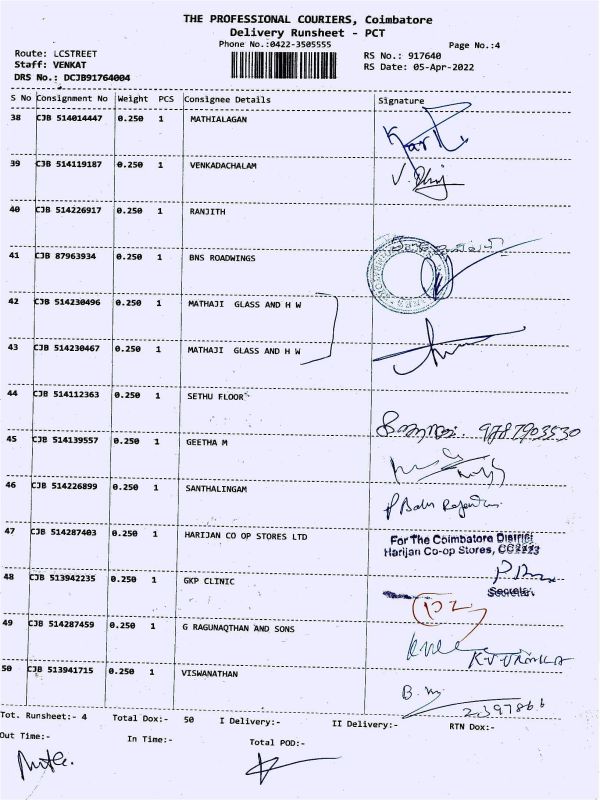 THE PROFESSIONAL COURIERS, Coimbatore
Delivery Runsheet - PCT
Phone No.:0422-3505555
Page No.:4
Route: LCSTREET
Staff: VENKAT
DRS No.: DCJB91764004
RS No.: 917640
RS Date: 05-Apr-2022
S No Consignment No Weight PCS Consignee Details Signature
38 CJB 514014447 0.250 1 MATHIALAGAN
39 CJB 514119187 0.250 1 VENKADACHALAM
40 CJB 514226917 0.250 1 RANJITH
41 CJB 87963934 0.250 1 BNS ROADWINGS
42 CJB 514230496 0.250 1 MATHAJI GLASS AND H W
43 CJB 514230467 0.250 1 MATHAJI GLASS AND H W
44 CJB 514112363 0.250 1 SETHU FLOOR
9787903530
45 CJB 514139557 0.250 1 GEETHA M
46 CJB 514226899 0.250 1 SANTHALINGAM
P Babu
47 CJB 514287403 0.250 1 HARIJAN CO OP STORES LTD
For The Coimbatore District
Harijan Co-op Stores,
48 CJB 513942235 0.250 1 GKP CLINIC
Secretary
49 CJB 514287459 0.250 1 G RAGUNAQTHAN AND SONS
50 CJB 513941715 0.250 1 VISWANATHAN
Tot. Runsheet:- 4 Total Dox:- 50 I Delivery:- II Delivery:- RTN Dox:-
Out Time:- In Time:- Total POD:-